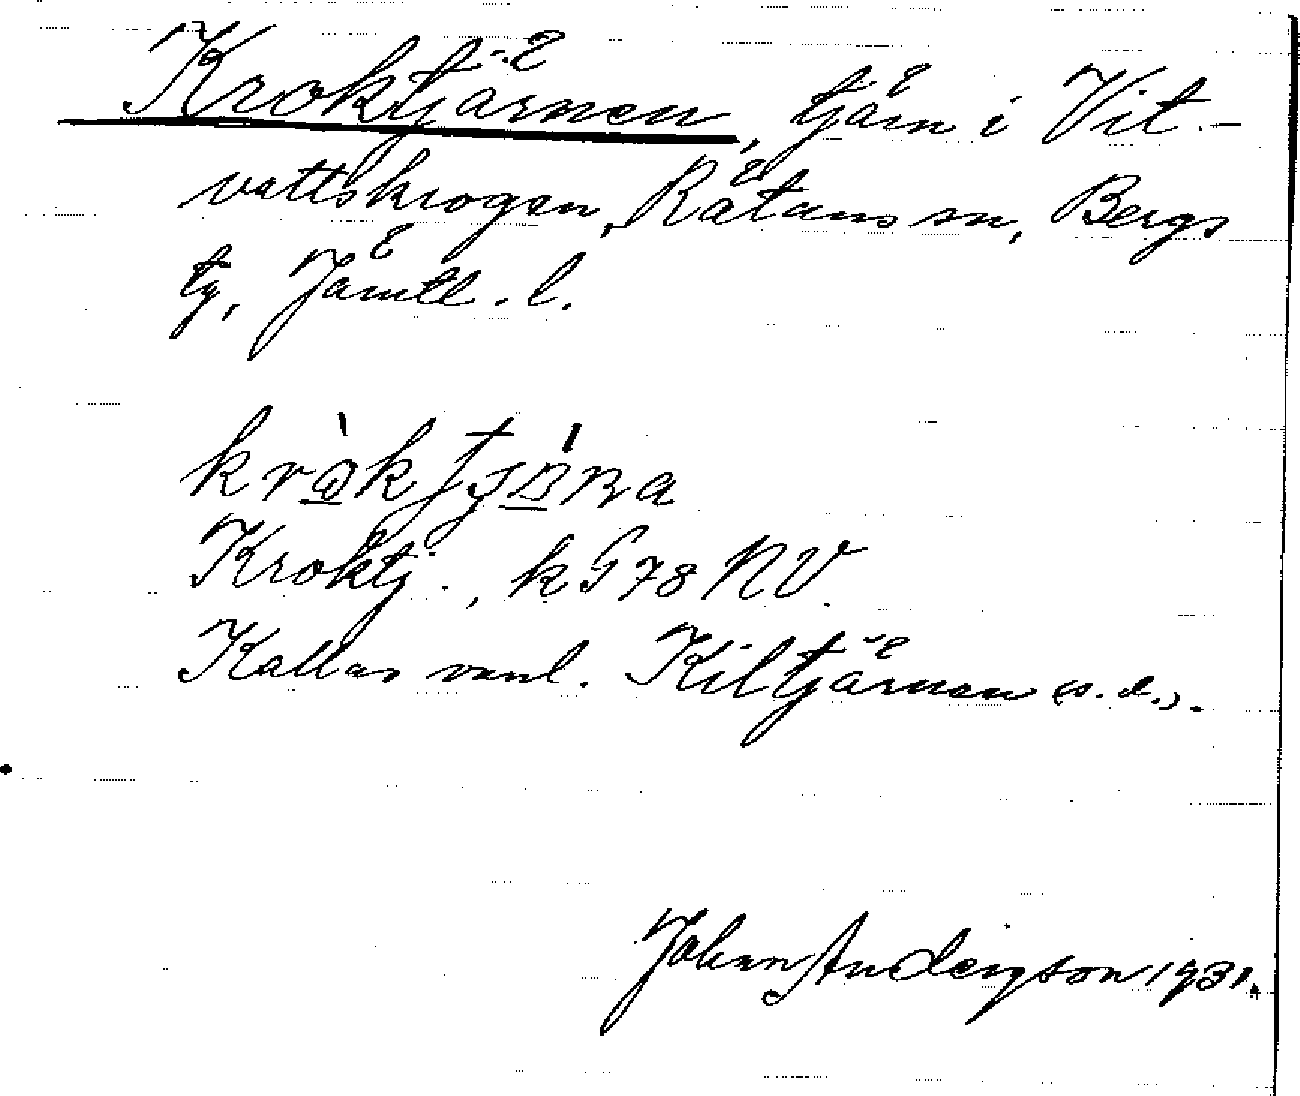 Kroktjärnen, tjärn i Vit-
vattskrogen, Rätans sn, Bergs
tg, Jämtl. l.
Kroktj., kG78 NV.
Kallas vanl. Kiltjärnen (s. d.).
Johan Anderson 1931.